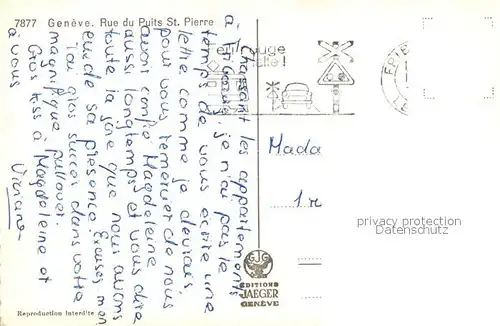 7877 Genève. Rue du Puits St. Pierre
Chassant les appartements
à je n'ai pas le
temps de vous écrire une
lettre comme je devrais
pour vous remercier de nous
avoir confié Magdeleine
aussi longtemps et vous dire
toute la joie que nous avons
eue de sa présence. Excusez moi
J'ai gros succès dans votre
magnifique pullover.
Gros à Magdeleine et
à vous
Viviane
rouge
Mada
1 r
privacy protection
Datenschutz
EDITIONS
JAEGER
GENÈVE
Reproduction interdite